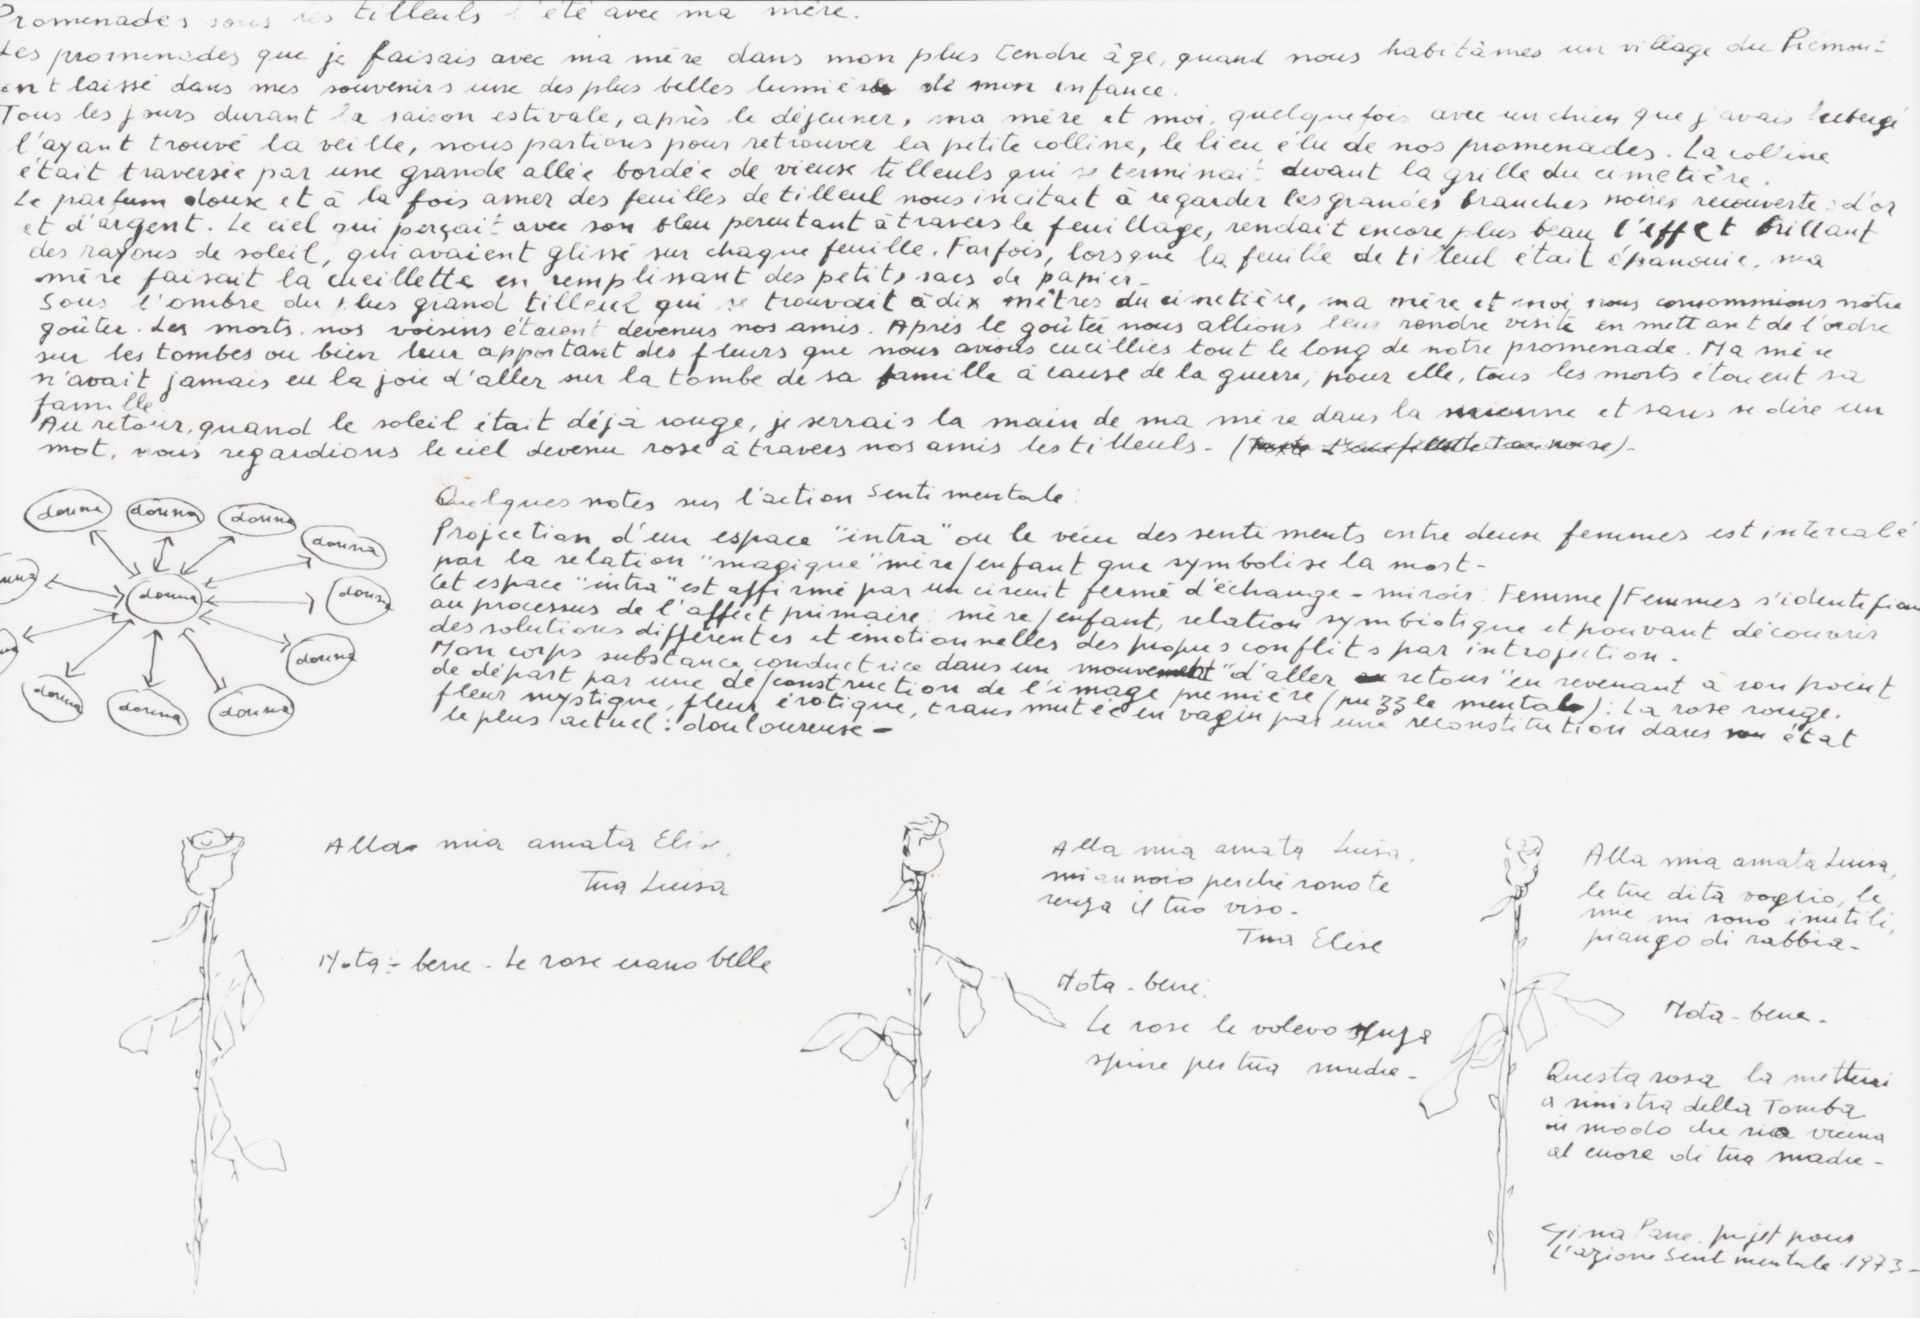 Promenades sous les tilleuls l'été avec ma mère.
Les promenades que je faisais avec ma mère dans mon plus tendre âge, quand nous habitâmes un village du Piémont
ont laissé dans mes souvenirs une des plus belles lumières de mon enfance.
Tous les jours durant la saison estivale, après le déjeuner, ma mère et moi, quelquefois avec un chien que j'avais hébergé
l'ayant trouvé la veille, nous partions pour retrouver la petite colline, le lieu élu de nos promenades. La colline
était traversée par une grande allée bordée de vieux tilleuls qui se terminait devant la grille du cimetière.
Le parfum doux et à la fois amer des feuilles de tilleul nous incitait à regarder les grandes branches noires recouvertes d'or
et d'argent. Le ciel qui perçait avec son bleu percutant à travers le feuillage, rendait encore plus beau l'effet brillant
des rayons de soleil, qui avaient glissé sur chaque feuille. Parfois, lorsque la feuille de tilleul était épanouie, ma
mère faisait la cueillette en remplissant des petits sacs de papier.
Sous l'ombre du plus grand tilleul qui se trouvait à dix mètres du cimetière, ma mère et moi nous consommions notre
goûter. Les morts, nos voisins étaient devenus nos amis. Après le goûter nous allions leur rendre visite en mettant de l'ordre
sur les tombes ou bien leur apportant des fleurs que nous avions cueillies tout le long de notre promenade. Ma mère
n'avait jamais eu la joie d'aller sur la tombe de sa famille à cause de la guerre, pour elle, tous les morts étaient sa
famille
Au retour, quand le soleil était déjà rouge, je serrais la main de ma mère dans la mienne et sans se dire un
mot, nous regardions le ciel devenu rose à travers nos amis les tilleuls -
donna donna donna donna
donna donna donna
donna
donna donna donna
Quelques notes sur l'action Sentimentale:
Projection d'un espace "intra" ou le vécu des sentiments entre deux femmes est intercalé
par la relation "magique" mère/enfant que symbolise la mort -
Cet espace "intra" est affirmé par un circuit fermé d'échange - miroir: Femme/Femmes s'identifiant
au processus de l'affect primaire: mère/enfant, relation symbiotique et pouvant découvrir
des solutions différentes et émotionnelles des propres conflits par introjection.
Mon corps substance conductrice dans un mouvement "d'aller retour" en revenant à son point
de départ par une dé/construction de l'image première (puzzle mental): La rose rouge.
fleur mystique, fleur érotique, transmutée en vagin par une reconstitution dans son état
le plus actuel: douloureuse -
Alla mia amata Elise,
Tua Luisa
Nota-bene. Le rose erano belle
Alla mia amata Luisa,
mi annoio perché sono te
senza il tuo viso.
Tua Elise
Nota-bene:
Le rose le volevo senza
spine per tua madre -
Alla mia amata Luisa,
le tue dita voglio, le
mie mi sono inutili,
piango di rabbia -
Nota-bene -
Questa rosa la metterai
a sinistra della Tomba
in modo che sia vicina
al cuore di tua madre -
Gina Pane. projet pour
l'azione Sentimentale 1973 -